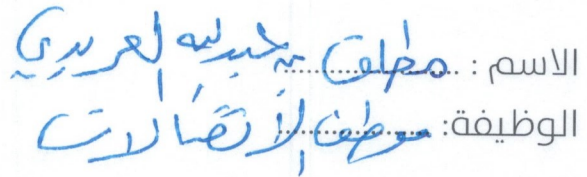 الاسم : مطلق بن عبدالله العريدي
الوظيفة: موظف الاتصالات